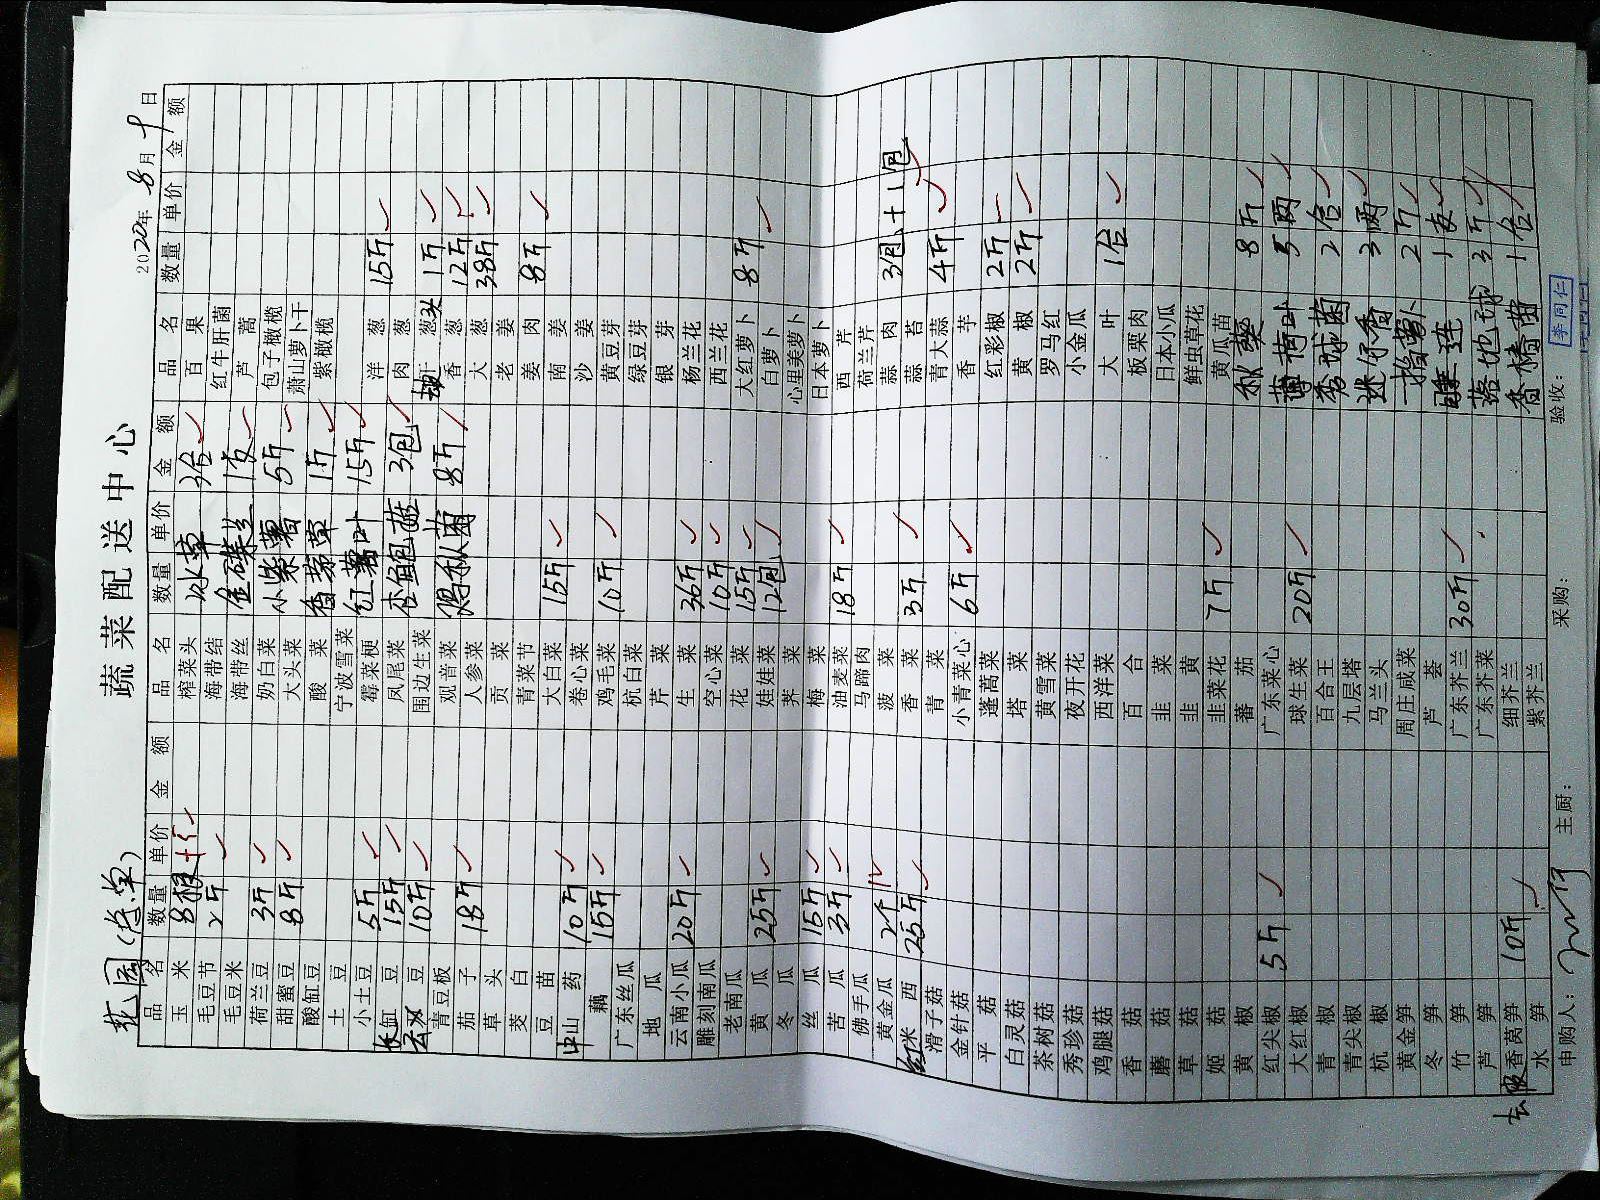 蔬菜配送中心
花园(总单) 2020年8月 日
品名 数量 单价 金额 品名 数量 单价 金额 品名 数量 单价 金额
玉米 8根 榨菜头 冰草 3盒 百果
毛豆节 2斤 海带结 1支 红牛肝菌
毛豆米 海带丝 小紫薯 5斤 芦蒿
荷兰豆 3斤 奶白菜 香茅草 1斤 包子橄榄
甜蜜豆 8斤 大头菜 红薯叶 15斤 萧山萝卜干
酸缸豆 酸菜 杏鲍菇 3包 紫橄榄
土豆 宁波雪菜 鸡枞菌 8斤
小土豆 5斤 霉菜梗 洋葱 15斤
长缸豆 15斤 凤尾菜 肉葱
豆 10斤 围边生菜 干葱头 1斤
青豆板 观音菜 香葱 12斤
茄子 18斤 人参菜 大葱 38斤
草头 贡菜 老姜
茭白 青菜节 姜肉 8斤
豆苗 大白菜 15斤 南姜
山药 10斤 卷心菜 沙姜
藕 15斤 鸡毛菜 10斤 黄豆芽
广东丝瓜 杭白菜 绿豆芽
地瓜 芹菜 银芽
云南小瓜 20斤 生菜 36斤 杨兰花
雕刻南瓜 空心菜 10斤 西兰花
老南瓜 花菜 15斤 大红萝卜 8斤
黄瓜 25斤 娃娃菜 12包 白萝卜
冬瓜 荠菜 心里美萝卜
丝瓜 15斤 梅菜 日本萝卜
苦瓜 3斤 油麦菜 18斤 西芹
佛手瓜 马蹄肉 荷兰芹
黄金瓜 2个 菠菜 蒜肉 3包+1包
红米西 25斤 香菜 3斤 蒜苔
滑子菇 青菜 青大蒜 4斤
金针菇 小青菜心 6斤 香芋
平菇 蓬蒿菜 红彩椒 2斤
白灵菇 塔菜 黄椒 2斤
茶树菇 黄雪菜 罗马红
秀珍菇 夜开花 小金瓜
鸡腿菇 西洋菜 大叶 1盒
香菇 百合 板栗肉
蘑菇 韭菜 日本小瓜
草菇 韭黄 鲜虫草花
姬菇 韭菜花 7斤 黄瓜苗
黄椒 蕃茄 秋葵 8斤
红尖椒 5斤 广东菜心 薄荷叶 5两
大红椒 球生菜 20斤 秀球菌 2盒
青椒 百合王 迷仔香 3两
青尖椒 九层塔 一指萝卜 2斤
杭椒 马兰头 睡莲 1支
黄金笋 周庄咸菜 落地球 3斤
冬笋 芦荟 香椿苗 1盒
竹笋 广东芥兰 30斤
芦笋 广东芥菜
去皮香莴笋 10斤 细芥兰
水笋 紫芥兰
申购人： 主厨： 采购： 验收： 李同仁